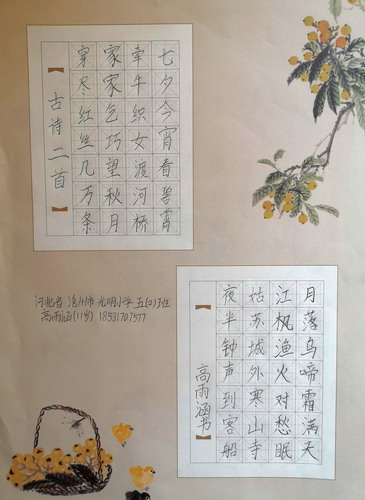 七夕今宵看碧霄
牵牛织女渡河桥
家家乞巧望秋月
穿尽红丝几万条
【古诗二首】
河北省沧州市光明小学五(2)班
高雨涵(11岁) 18531707577
月落乌啼霜满天
江枫渔火对愁眠
姑苏城外寒山寺
夜半钟声到客船
【高雨涵书】